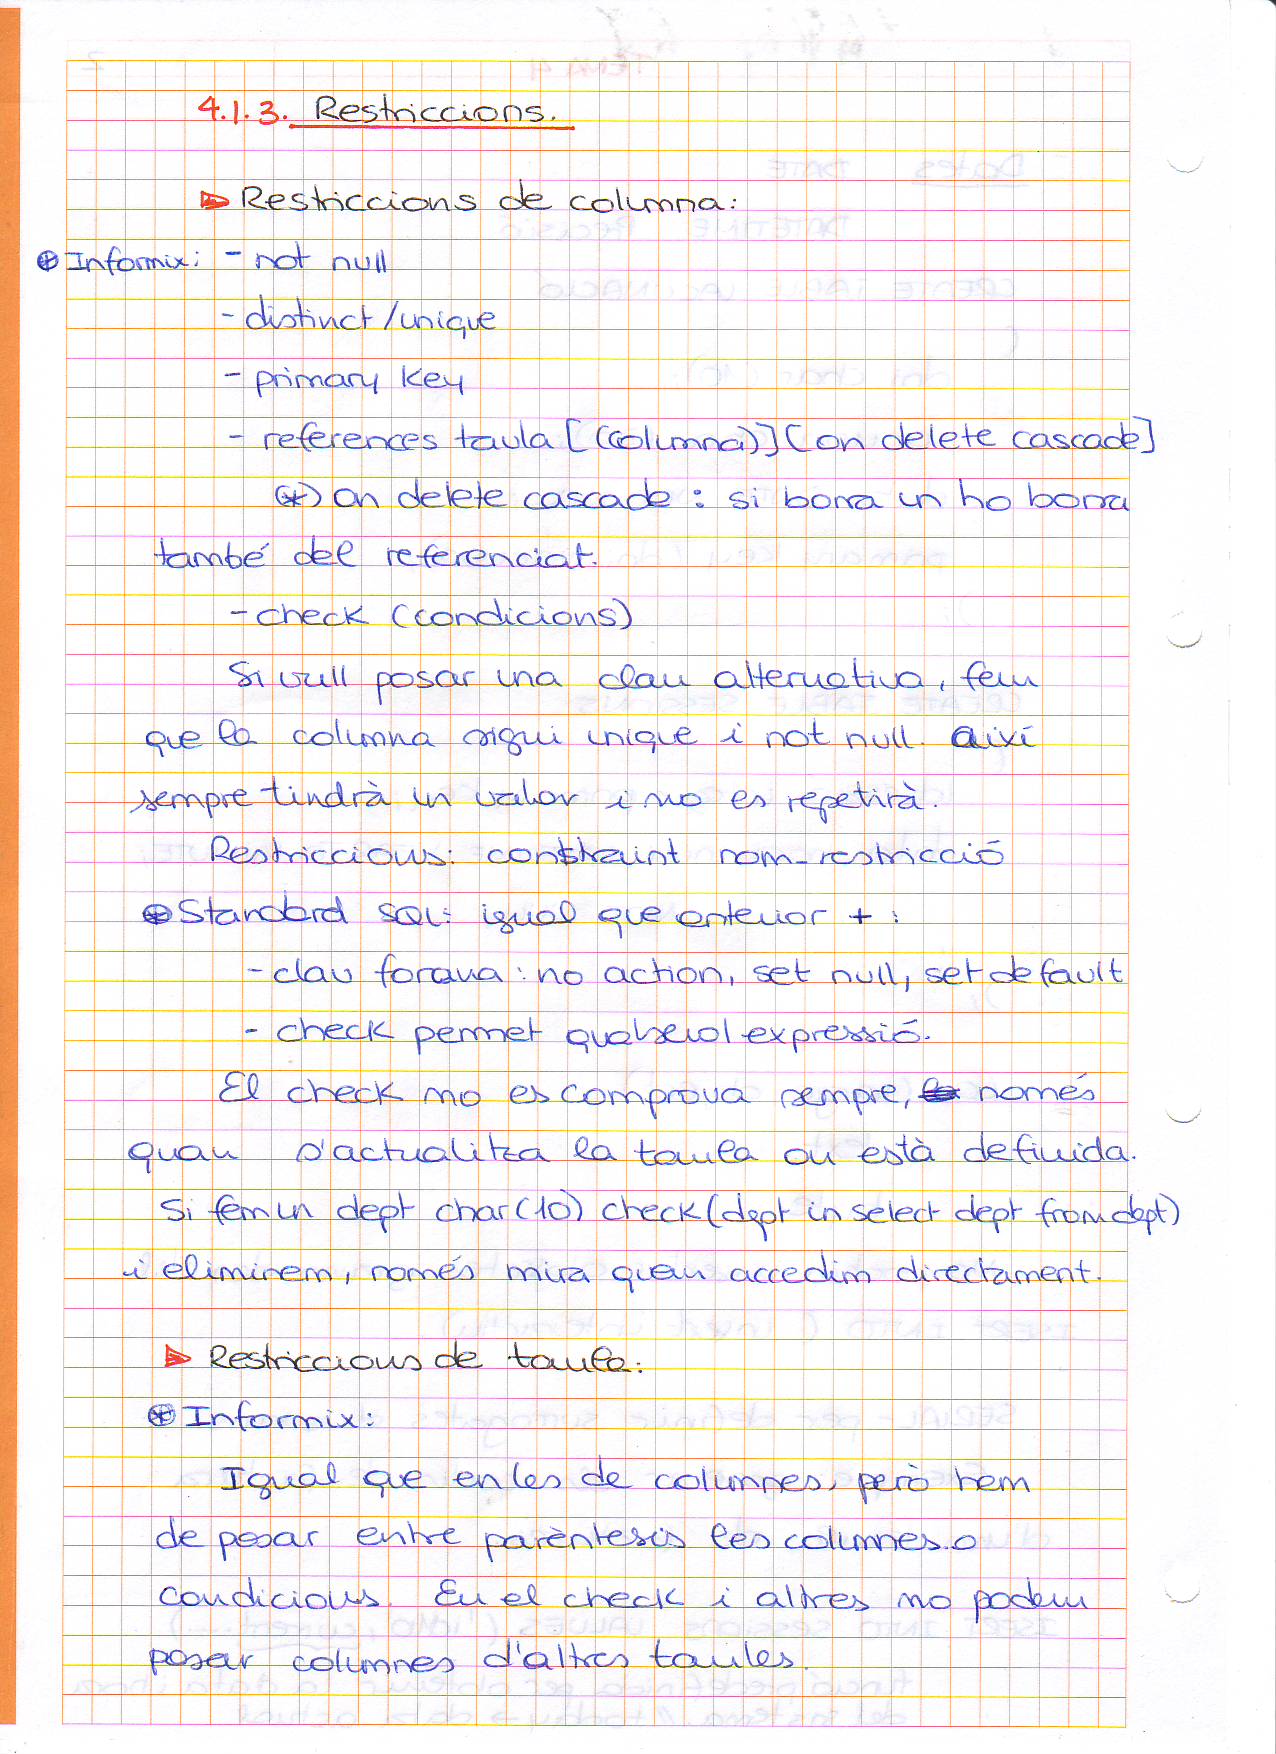 4.1.3. Restriccions.
Restriccions de columna:
⊛ Informix: - not null
- distinct/unique
- primary key
- references taula [(columna)] [on delete cascade]
(*) on delete cascade: si borra un ho borra
també del referenciat.
- check (condicions)
Si vull posar una clau alternativa, fem
que la columna sigui unique i not null. així
sempre tindrà un valor i no es repetirà.
Restriccions: constraint nom-restricció
⊛ Standard SQL: igual que anterior + :
- clau forana: no action, set null, set default
- check permet qualsevol expressió.
El check no es comprova sempre, només
quan s'actualitza la taula on està definida.
Si fem un dept char(10) check(dept in select dept from dept)
i eliminem, només mira quan accedim directament.
Restriccions de taula:
⊛ Informix:
Igual que en les de columnes, però hem
de posar entre parèntesis les columnes o
condicions. En el check i altres no podem
posar columnes d'altres taules.